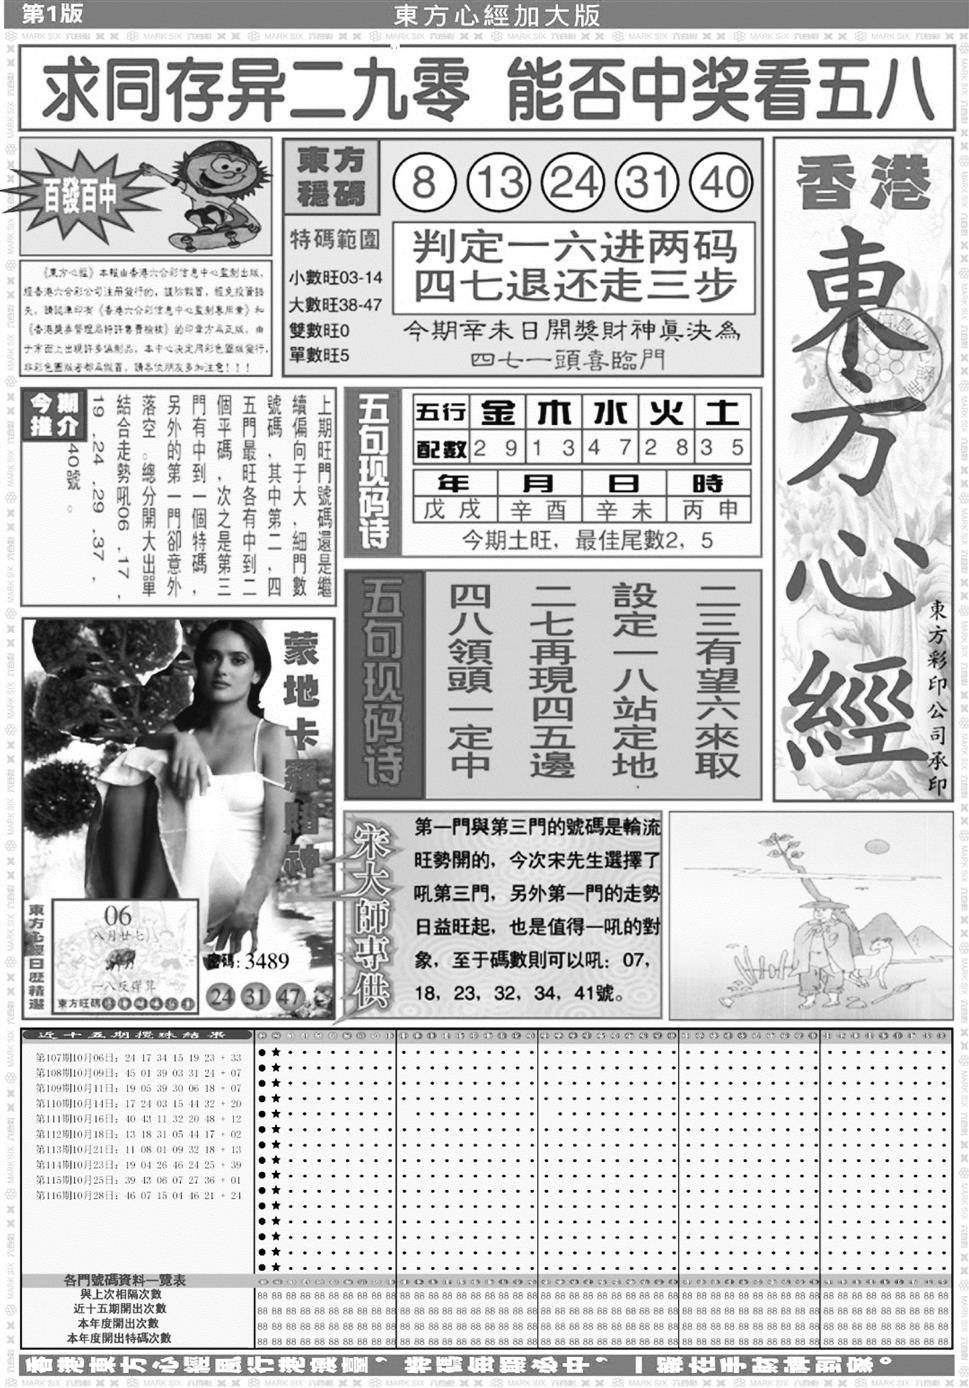 第1版
東方心經加大版
求同存异二九零 能否中奖看五八
百發百中
《東方心經》本報由香港六合彩信息中心監制出版,
經香港六合彩公司注册發行的,謹防假冒,經免投資損
失,請認準印有《香港六合彩信息中心監制專用章》和
《香港獎券管理局特許專賣檢核》的印章方爲正版,由
于市面上出現許多僞制品,本中心决定用彩色圖版發行,
非彩色圖版者都爲假冒,請各位朋友多加注意!!!
東方
穩碼
8 13 24 31 40
特碼範圍
小數旺03-14
大數旺38-47
雙數旺0
單數旺5
判定一六进两码
四七退还走三步
今期辛未日開獎財神眞決為
四七一頭喜臨門
香港
東方心經
東方彩印公司承印
今期
推介
上期旺門號碼還是繼
續偏向于大,細門數
號碼,其中第二,四
五門最旺各有中到二
個平碼,次之是第三
門有中到一個特碼,
另外的第一門卻意外
落空。總分開大出單
結合走勢吼06.17,
19.24.29.37,
40號。
五句现码诗
五行 金 木 水 火 土
配數 2 9 1 3 4 7 2 8 3 5
年 月 日 時
戊戌 辛酉 辛未 丙申
今期土旺,最佳尾數2,5
五句现码诗
二三有望六來取
設定一八站定地
二七再現四五邊
四八領頭一定中
蒙地卡羅賭神
東方心經日歷精選
06
八月廿七
東方旺碼
密碼:3489
24 31 47
宋大師專供
第一門與第三門的號碼是輪流
旺勢開的,今次宋先生選擇了
吼第三門,另外第一門的走勢
日益旺起,也是值得一吼的對
象,至于碼數則可以吼:07,
18,23,32,34,41號。
近十五期攪珠結果
第107期10月06日:24 17 34 15 19 23 + 33
第108期10月09日:45 01 39 03 31 24 + 07
第109期10月11日:19 05 39 30 06 18 + 07
第110期10月14日:17 24 03 15 44 32 + 20
第111期10月16日:40 43 11 32 20 48 + 12
第112期10月18日:13 18 31 05 44 17 + 02
第113期10月21日:11 08 01 09 32 18 + 13
第114期10月23日:19 04 26 46 24 25 + 39
第115期10月25日:39 43 06 07 27 36 + 01
第116期10月28日:46 07 15 04 46 21 + 24
各門號碼資料一覽表
與上次相隔次數
近十五期開出次數
本年度開出次數
本年度開出特碼次數
香港東方心經風行港澳臺,特碼每期必中,一報在手財神到家。